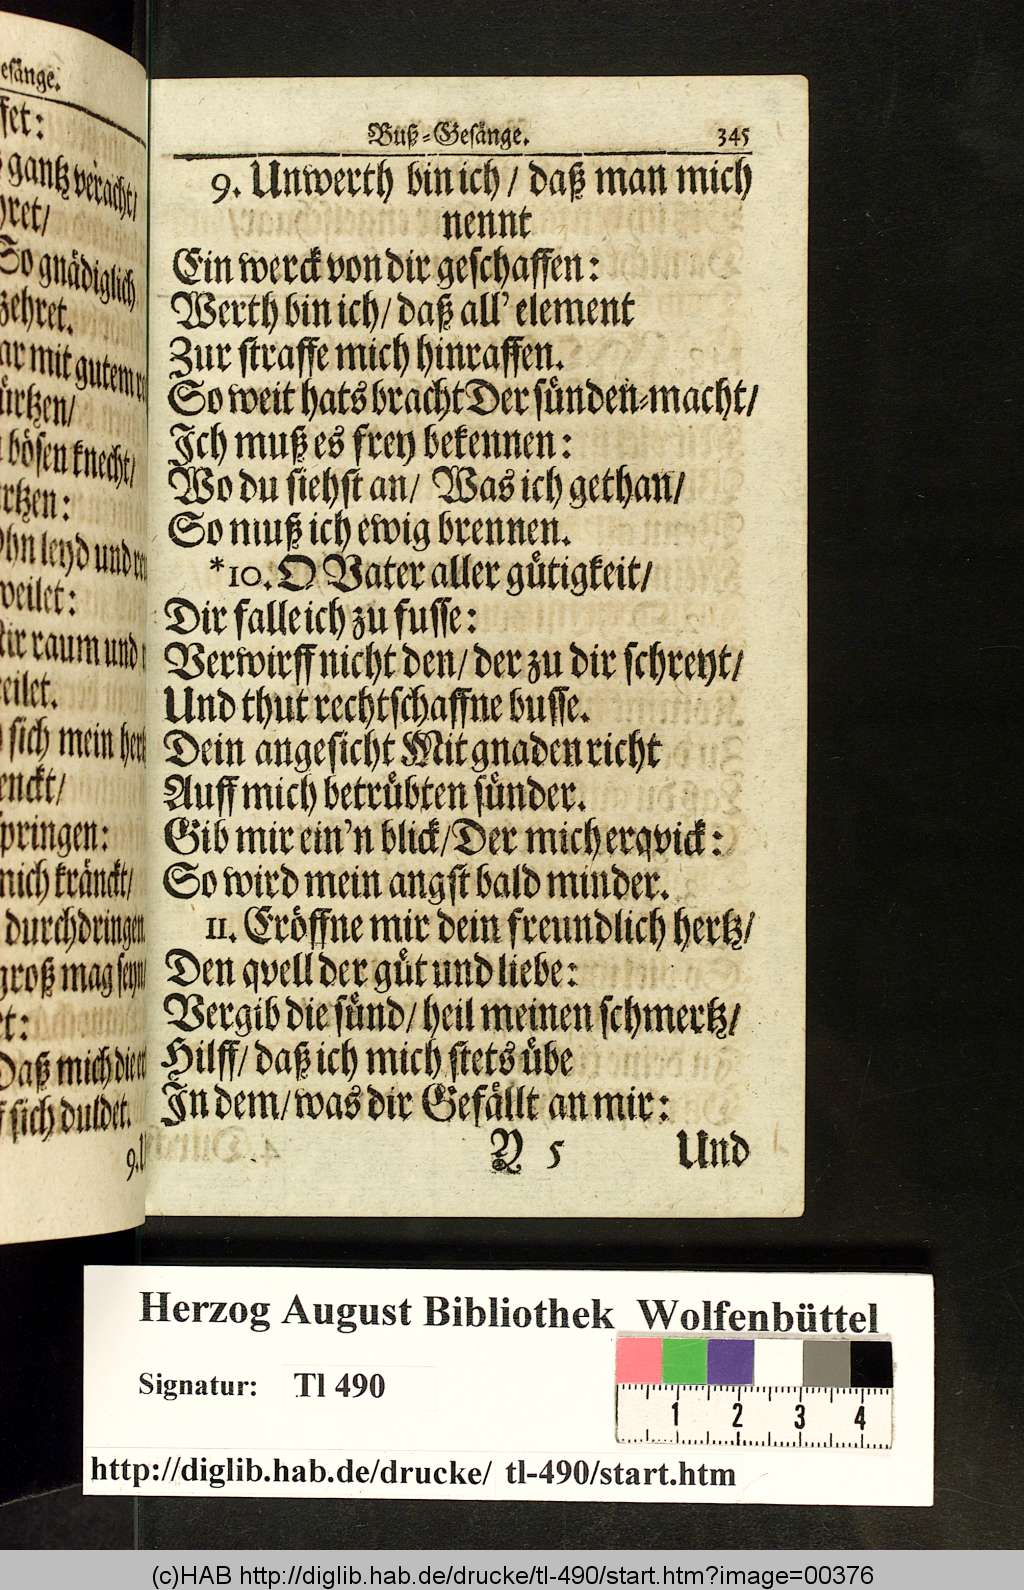 esänge.
fet:
gantz veracht/
hret/
So gnädiglich
zehret.
ar mit gutem
ürtzen/
bösen knecht/
rtzen:
Ohn leyd und
weilet:
Mir raum und
eilet.
sich mein hertz
enckt/
springen:
mich kränckt/
durchdringen
groß mag seyn/
et:
Daß mich die
sich duldet.
9.
Buß-Gesänge. 345
9. Unwerth bin ich/ daß man mich
nennt
Ein werck von dir geschaffen:
Werth bin ich/ daß all' element
Zur straffe mich hinraffen.
So weit hats bracht Der sünden-macht/
Ich muß es frey bekennen:
Wo du siehst an/ Was ich gethan/
So muß ich ewig brennen.
*10. O Vater aller gütigkeit/
Dir falle ich zu fusse:
Verwirff nicht den/ der zu dir schreyt/
Und thut rechtschaffne busse.
Dein angesicht Mit gnaden richt
Auff mich betrübten sünder.
Gib mir ein'n blick/ Der mich erqvick:
So wird mein angst bald minder.
11. Eröffne mir dein freundlich hertz/
Den qvell der güt und liebe:
Vergib die sünd/ heil meinen schmertz/
Hilff/ daß ich mich stets übe
In dem/ was dir Gefällt an mir:
Y 5 Und
Herzog August Bibliothek Wolfenbüttel
Signatur: Tl 490
1 2 3 4
http://diglib.hab.de/drucke/ tl-490/start.htm
(c)HAB http://diglib.hab.de/drucke/tl-490/start.htm?image=00376